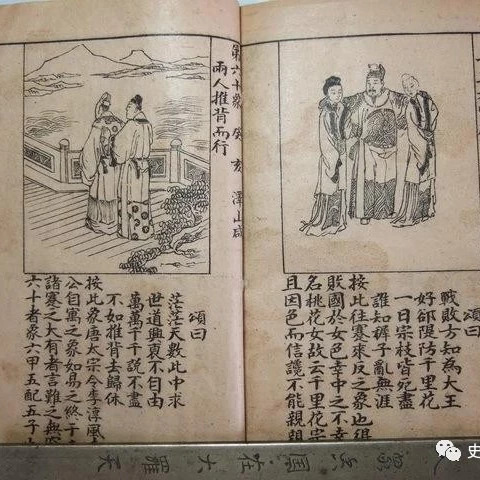 頌曰
戰敗方知為大王
好卻隄防千里花
一日宗枝皆宛盡
誰知褲子亂無涯
按此往蹇來反之象也
敗國於女色幸中之不幸
名桃花女故云千里花宗
且因色而信讒不能親親
第六十象 癸亥 澤山咸
兩人推背而行
頌曰
茫茫天數此中求
世道興衰不自由
萬萬千千說不盡
不如推背去歸休
按此象唐太宗令李淳風
公自寓之象如易之終于
諸蹇之大有者言難之
六十者象六甲五配五子
史